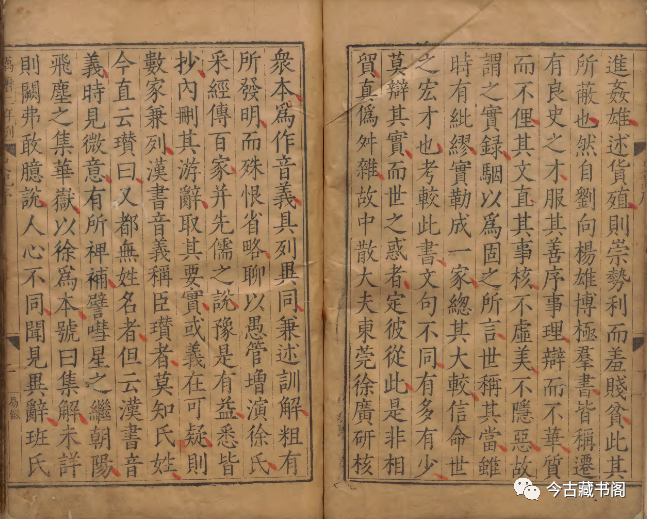 進姦雄述貨殖則崇勢利而羞賤貧此其
所蔽也然自劉向楊雄博極羣書皆稱遷
有良史之才服其善序事理辯而不華質
而不俚其文直其事核不虛美不隱惡故
謂之實録駰以爲固之所言世稱其當雖
時有紕繆實勒成一家總其大較信命世
之宏才也考較此書文句不同有多有少
莫辯其實而世之惑者定彼從此是非相
貿真僞舛雜故中散大夫東莞徐廣研核
衆本爲作音義具列異同兼述訓解粗有
所發明而殊恨省略聊以愚管増演徐氏
采經傳百家并先儒之說豫是有益悉皆
抄內刪其游辭取其要實或義在可疑則
數家兼列漢書音義稱臣瓚者莫知氏姓
今直云瓚曰又都無姓名者但云漢書音
義時見微意有所裨補譬嘒星之繼朝陽
飛塵之集華嶽以徐爲本號曰集解未詳
則闕弗敢臆說人心不同聞見異辭班氏
今古藏书阁